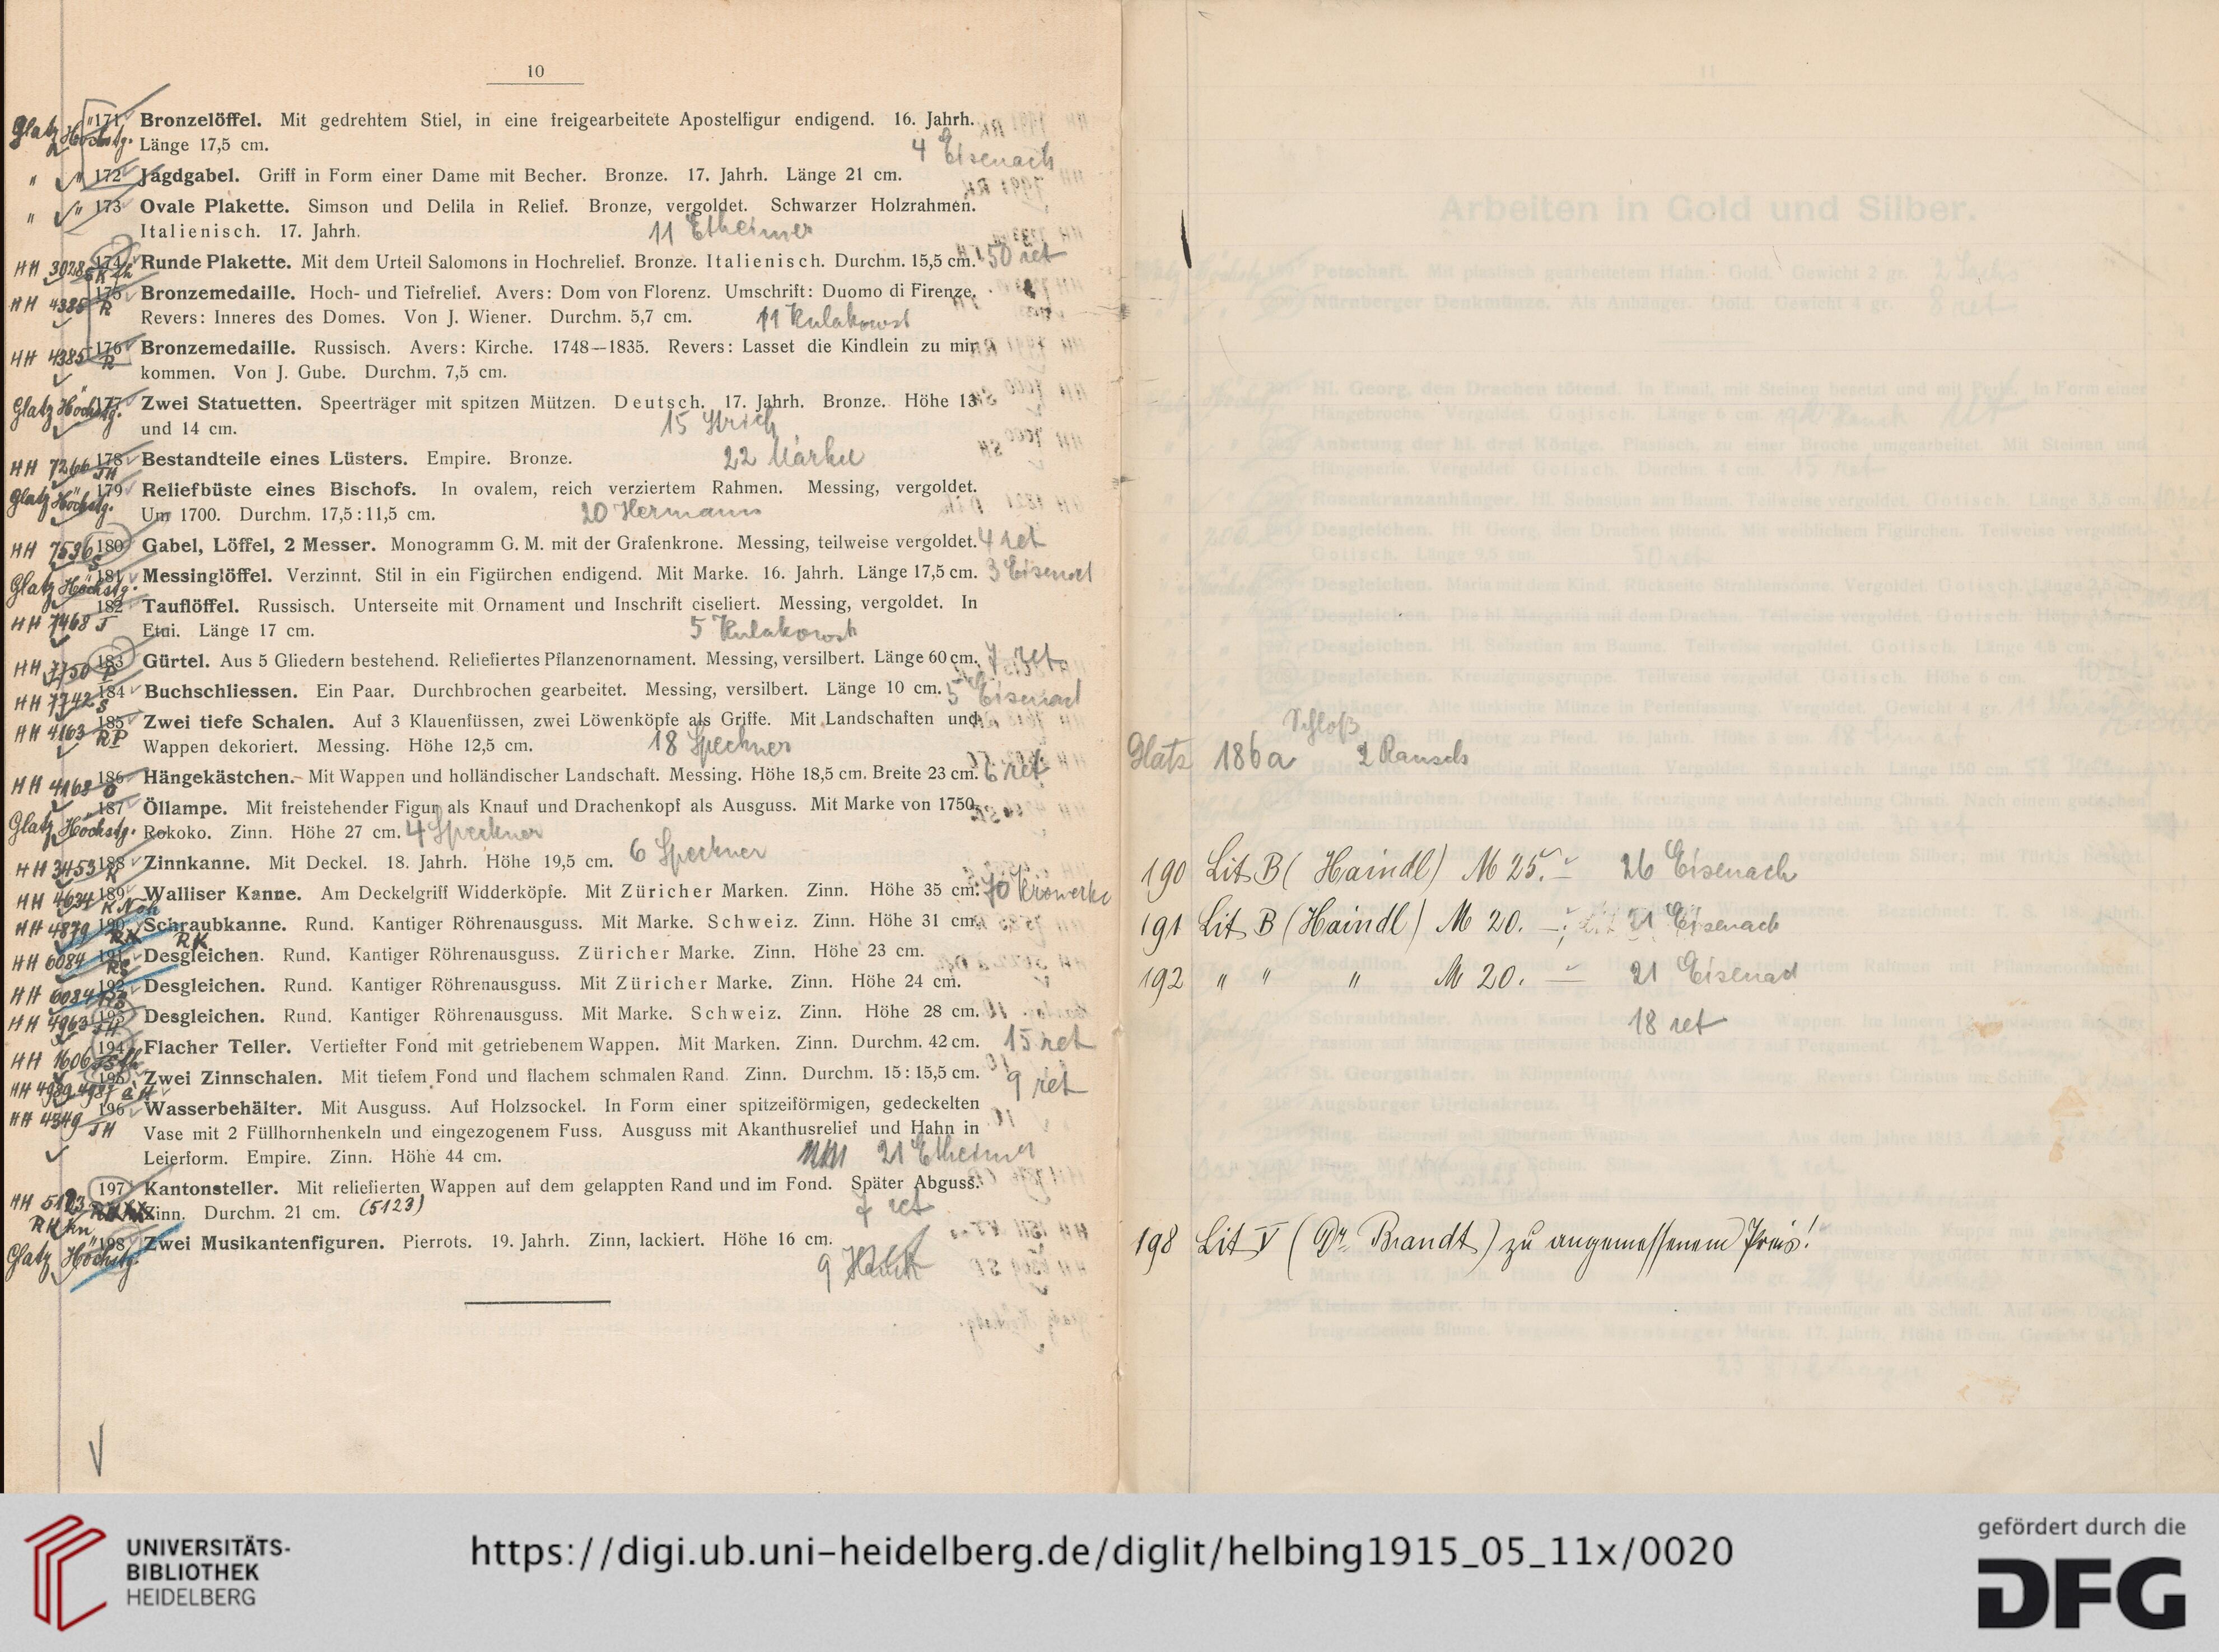 10
171 Bronzelöffel. Mit gedrehtem Stiel, in eine freigearbeitete Apostelfigur endigend. 16. Jahrh.
Glatz Höchstg. Länge 17,5 cm.
4 Eisenach
" " 172 Jagdgabel. Griff in Form einer Dame mit Becher. Bronze. 17. Jahrh. Länge 21 cm.
" " 173 Ovale Plakette. Simson und Delila in Relief. Bronze, vergoldet. Schwarzer Holzrahmen.
Italienisch. 17. Jahrh. 11 Etheimer
HH 3028 174 Runde Plakette. Mit dem Urteil Salomons in Hochrelief. Bronze. Italienisch. Durchm. 15,5 cm. 50 ret
HH 4385 R 175 Bronzemedaille. Hoch- und Tiefrelief. Avers: Dom von Florenz. Umschrift: Duomo di Firenze.
Revers: Inneres des Domes. Von J. Wiener. Durchm. 5,7 cm. 11 Kulakowst
HH 4385 R 176 Bronzemedaille. Russisch. Avers: Kirche. 1748—1835. Revers: Lasset die Kindlein zu mir
kommen. Von J. Gube. Durchm. 7,5 cm.
Glatz Höchstg. 177 Zwei Statuetten. Speerträger mit spitzen Mützen. Deutsch. 17. Jahrh. Bronze. Höhe 13
und 14 cm. 15
HH 7266 JH 178 Bestandteile eines Lüsters. Empire. Bronze. 22
Glatz Höchstg. 179 Reliefbüste eines Bischofs. In ovalem, reich verziertem Rahmen. Messing, vergoldet.
Um 1700. Durchm. 17,5 : 11,5 cm. 20 Hermann
HH 7536 S 180 Gabel, Löffel, 2 Messer. Monogramm G. M. mit der Grafenkrone. Messing, teilweise vergoldet. 4 ret
Glatz Höchstg. 181 Messinglöffel. Verzinnt. Stil in ein Figürchen endigend. Mit Marke. 16. Jahrh. Länge 17,5 cm. 3 Eisenach
182 Tauflöffel. Russisch. Unterseite mit Ornament und Inschrift ciseliert. Messing, vergoldet. In
HH 7468 J Etui. Länge 17 cm. 5 Kulakowst
HH 7750 P 183 Gürtel. Aus 5 Gliedern bestehend. Reliefiertes Pflanzenornament. Messing, versilbert. Länge 60 cm. 7 ret
HH 7742 S 184 Buchschliessen. Ein Paar. Durchbrochen gearbeitet. Messing, versilbert. Länge 10 cm. 5 Eisenach
HH 4163 RP 185 Zwei tiefe Schalen. Auf 3 Klauenfüssen, zwei Löwenköpfe als Griffe. Mit Landschaften und
Wappen dekoriert. Messing. Höhe 12,5 cm. 18 Speckner
HH 4168 186 Hängekästchen. Mit Wappen und holländischer Landschaft. Messing. Höhe 18,5 cm. Breite 23 cm. 6 ret
187 Öllampe. Mit freistehender Figur als Knauf und Drachenkopf als Ausguss. Mit Marke von 1750.
Glatz Höchstg. Rokoko. Zinn. Höhe 27 cm. 4 Speckner
HH 3453 R 188 Zinnkanne. Mit Deckel. 18. Jahrh. Höhe 19,5 cm. 6 Speckner
HH 4634 189 Walliser Kanne. Am Deckelgriff Widderköpfe. Mit Züricher Marken. Zinn. Höhe 35 cm. 70
HH 4879 RK RK 190 Schraubkanne. Rund. Kantiger Röhrenausguss. Mit Marke. Schweiz. Zinn. Höhe 31 cm.
HH 6084 RS 191 Desgleichen. Rund. Kantiger Röhrenausguss. Züricher Marke. Zinn. Höhe 23 cm.
HH 6084 192 Desgleichen. Rund. Kantiger Röhrenausguss. Mit Züricher Marke. Zinn. Höhe 24 cm.
HH 4963 JH 193 Desgleichen. Rund. Kantiger Röhrenausguss. Mit Marke. Schweiz. Zinn. Höhe 28 cm.
HH 1606 194 Flacher Teller. Vertiefter Fond mit getriebenem Wappen. Mit Marken. Zinn. Durchm. 42 cm. 15 ret
HH 4989 4987 195 Zwei Zinnschalen. Mit tiefem Fond und flachem schmalen Rand. Zinn. Durchm. 15 : 15,5 cm. 9 ret
HH 4349 JH 196 Wasserbehälter. Mit Ausguss. Auf Holzsockel. In Form einer spitzeiförmigen, gedeckelten
Vase mit 2 Füllhornhenkeln und eingezogenem Fuss. Ausguss mit Akanthusrelief und Hahn in
Leierform. Empire. Zinn. Höhe 44 cm. 21 Etheimer
197 Kantonsteller. Mit reliefierten Wappen auf dem gelappten Rand und im Fond. Später Abguss.
HH 5123 Zinn. Durchm. 21 cm. (5123) 7 ret
198 Zwei Musikantenfiguren. Pierrots. 19. Jahrh. Zinn, lackiert. Höhe 16 cm.
Glatz Höchstg. 9
Schloß
Glatz 186a 2 Rausch
190 Lit. B (Haindl) M 25.– 26 Eisenach
191 Lit. B (Haindl) M 20.– 21 Eisenach
192 " " " M 20.– 21 Eisenach
18 ret
198 Lit. V (Dr. Brandt) zu angemessenem Preis!
UNIVERSITÄTS-
BIBLIOTHEK
HEIDELBERG
https://digi.ub.uni-heidelberg.de/diglit/helbing1915_05_11x/0020
gefördert durch die
DFG